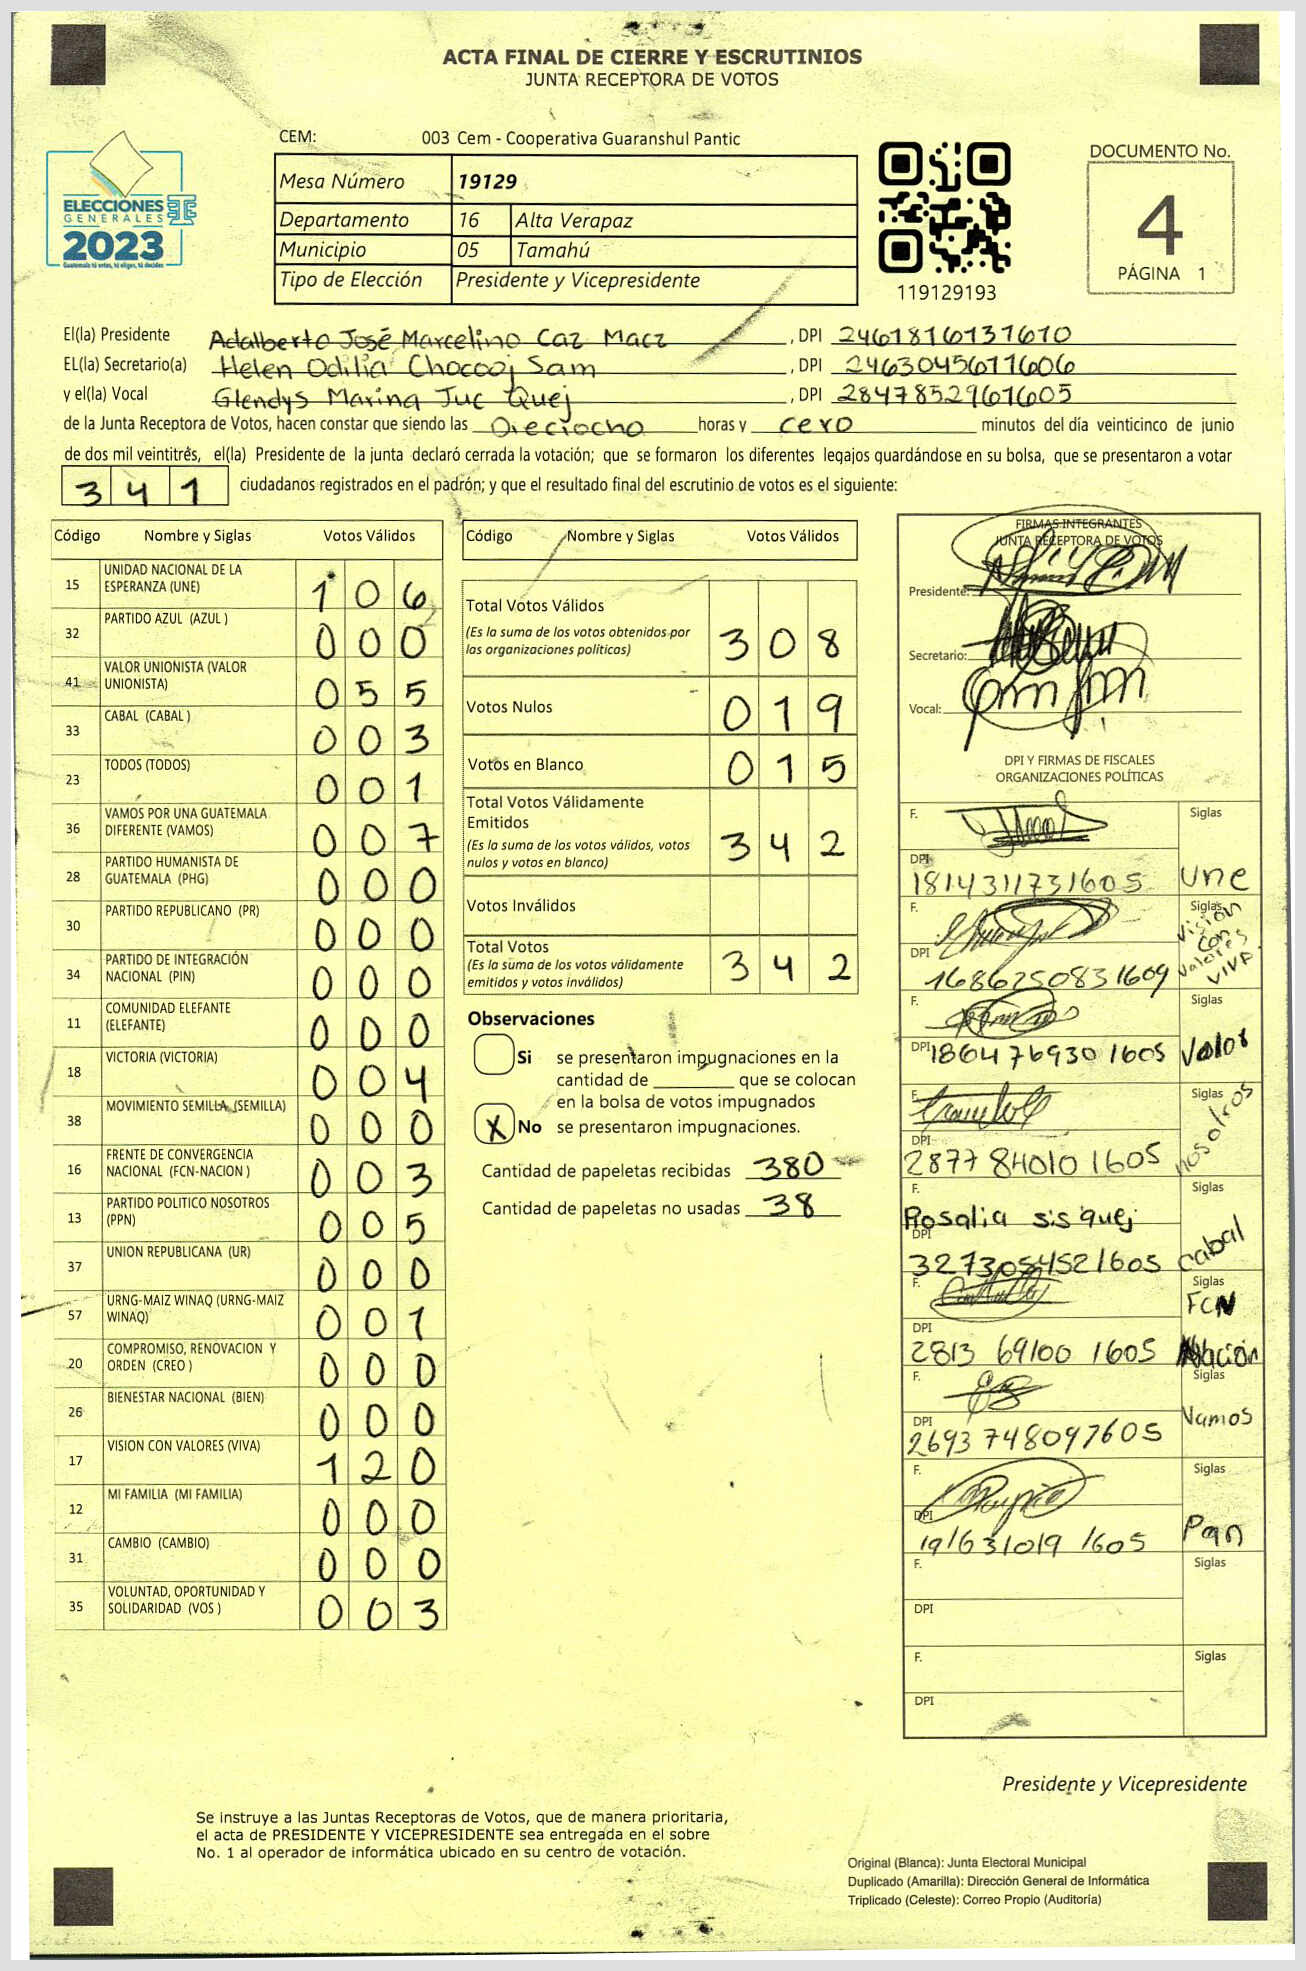 ACTA FINAL DE CIERRE Y ESCRUTINIOS
JUNTA RECEPTORA DE VOTOS
ELECCIONES
GENERALES
2023
Guatemala tú votas, tú eliges, tú decides
CEM: 003 Cem - Cooperativa Guaranshul Pantic
Mesa Número 19129
Departamento 16 Alta Verapaz
Municipio 05 Tamahú
Tipo de Elección Presidente y Vicepresidente
119129193
DOCUMENTO No.
4
PÁGINA 1
El(la) Presidente Adalberto José Marcelino Caz Macz , DPI 2461816131610
EL(la) Secretario(a) Helen Odilia Chocooj Sam , DPI 2463045671606
y el(la) Vocal Glendys Marina Juc Quej , DPI 2847852961605
de la Junta Receptora de Votos, hacen constar que siendo las Dieciocho horas y cero minutos del día veinticinco de junio
de dos mil veintitrés, el(la) Presidente de la junta declaró cerrada la votación; que se formaron los diferentes legajos guardándose en su bolsa, que se presentaron a votar
341 ciudadanos registrados en el padrón; y que el resultado final del escrutinio de votos es el siguiente:
Código Nombre y Siglas Votos Válidos
15 UNIDAD NACIONAL DE LA ESPERANZA (UNE) 106
32 PARTIDO AZUL (AZUL ) 000
41 VALOR UNIONISTA (VALOR UNIONISTA) 055
33 CABAL (CABAL ) 003
23 TODOS (TODOS) 001
36 VAMOS POR UNA GUATEMALA DIFERENTE (VAMOS) 007
28 PARTIDO HUMANISTA DE GUATEMALA (PHG) 000
30 PARTIDO REPUBLICANO (PR) 000
34 PARTIDO DE INTEGRACIÓN NACIONAL (PIN) 000
11 COMUNIDAD ELEFANTE (ELEFANTE) 000
18 VICTORIA (VICTORIA) 004
38 MOVIMIENTO SEMILLA (SEMILLA) 000
16 FRENTE DE CONVERGENCIA NACIONAL (FCN-NACION ) 003
13 PARTIDO POLITICO NOSOTROS (PPN) 005
37 UNION REPUBLICANA (UR) 000
57 URNG-MAIZ WINAQ (URNG-MAIZ WINAQ) 001
20 COMPROMISO, RENOVACION Y ORDEN (CREO ) 000
26 BIENESTAR NACIONAL (BIEN) 000
17 VISION CON VALORES (VIVA) 120
12 MI FAMILIA (MI FAMILIA) 000
31 CAMBIO (CAMBIO) 000
35 VOLUNTAD, OPORTUNIDAD Y SOLIDARIDAD (VOS ) 003
Código Nombre y Siglas Votos Válidos
Total Votos Válidos
(Es la suma de los votos obtenidos por
las organizaciones políticas) 308
Votos Nulos 019
Votos en Blanco 015
Total Votos Válidamente
Emitidos
(Es la suma de los votos válidos, votos
nulos y votos en blanco) 342
Votos Inválidos
Total Votos
(Es la suma de los votos válidamente
emitidos y votos inválidos) 342
Observaciones
Si se presentaron impugnaciones en la
cantidad de ________ que se colocan
en la bolsa de votos impugnados
X No se presentaron impugnaciones.
Cantidad de papeletas recibidas 380
Cantidad de papeletas no usadas 38
FIRMAS INTEGRANTES
JUNTA RECEPTORA DE VOTOS
Presidente:
Secretario:
Vocal:
DPI Y FIRMAS DE FISCALES
ORGANIZACIONES POLÍTICAS
F. Siglas
DPI 1814311731605 Une
F. Siglas
DPI 1686250831609 Vision con valores VIVA
F. Siglas
DPI 1864769301605 Valor
F. Siglas
DPI 2877 84010 1605 nosotros
F. Rosalia sis quej Siglas
DPI 3273054521605 cabal
F. Siglas
DPI 2813 69100 1605 FCN Nación
F. Siglas
DPI 2693748097605 Vamos
F. Siglas
DPI 191631019 1605 Pan
F. Siglas
DPI
F. Siglas
DPI
Presidente y Vicepresidente
Se instruye a las Juntas Receptoras de Votos, que de manera prioritaria,
el acta de PRESIDENTE Y VICEPRESIDENTE sea entregada en el sobre
No. 1 al operador de informática ubicado en su centro de votación.
Original (Blanca): Junta Electoral Municipal
Duplicado (Amarilla): Dirección General de Informática
Triplicado (Celeste): Correo Propio (Auditoría)